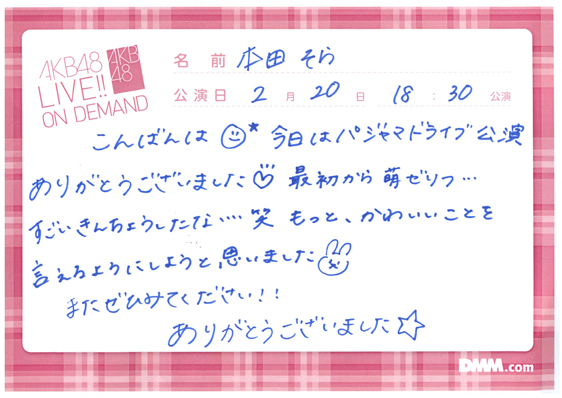 AKB48
LIVE!!
ON DEMAND
AKB
48
名前 本田 そら
公演日 2月 20日 18:30 公演
こんばんは 今日はパジャマドライブ公演
ありがとうございました♡ 最初から萌ゼリフ…
すごいきんちょうしたな…. 笑 もっと、かわいいことを
言えるようにしようと、思いました
またぜひみてください!!
ありがとうございました☆
DMM.com